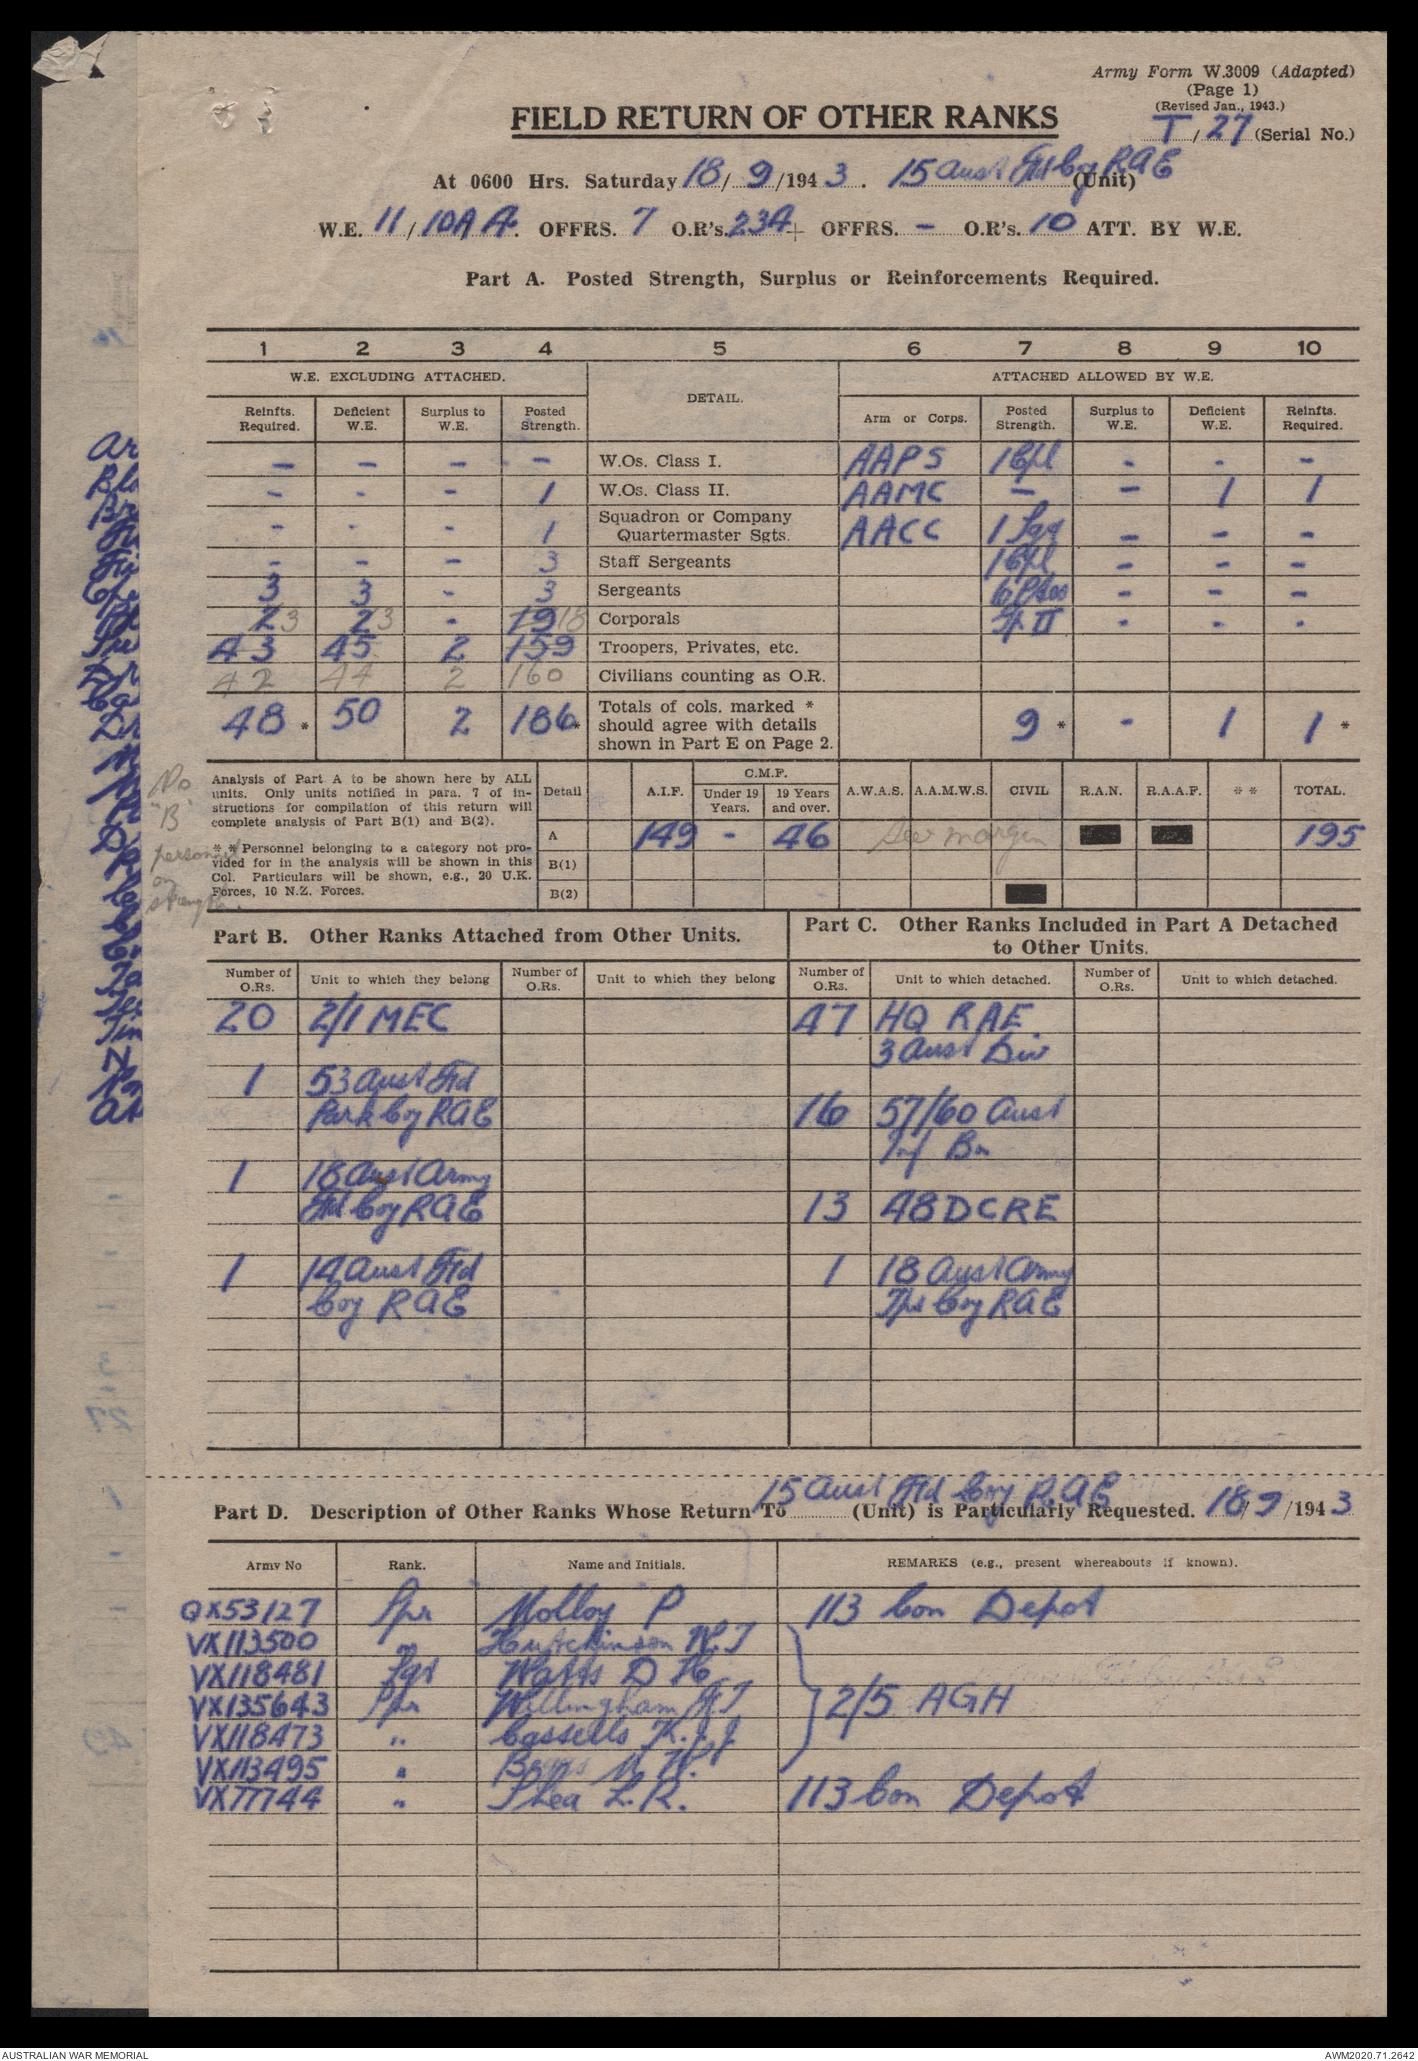 Army Form W.3009 (Adapted)
(Page 1)
(Revised Jan., 1943.)
FIELD RETURN OF OTHER RANKS
T/27 (Serial No.)
At 0600 Hrs. Saturday 18/9/1943. 15 Aust Fld Coy RAE (Unit)
W.E. 11/10AA. OFFRS. 7 O.R's. 234 + OFFRS. - O.R's. 10 ATT. BY W.E.
Part A. Posted Strength, Surplus or Reinforcements Required.
1 2 3 4 5 6 7 8 9 10
W.E. EXCLUDING ATTACHED. DETAIL. ATTACHED ALLOWED BY W.E.
Reinfts. Required. Deficient W.E. Surplus to W.E. Posted Strength. Arm or Corps. Posted Strength. Surplus to W.E. Deficient W.E. Reinfts. Required.
- - - - W.Os. Class I. AAPS 1 Cpl - - -
- - - 1 W.Os. Class II. AAMC - - 1 1
- - - 1 Squadron or Company Quartermaster Sgts. AACC 1 Sgt - - -
- - - 3 Staff Sergeants 1 Cpl - - -
3 3 - 3 Sergeants 6 Ptes - - -
2 3 2 3 - 19 18 Corporals II - - -
43 45 2 159 Troopers, Privates, etc.
42 44 2 160 Civilians counting as O.R.
48 * 50 2 186 * Totals of cols. marked * should agree with details shown in Part E on Page 2. 9 * - 1 1 *
Analysis of Part A to be shown here by ALL
units. Only units notified in para. 7 of in-
structions for compilation of this return will
complete analysis of Part B(1) and B(2).
* * Personnel belonging to a category not pro-
vided for in the analysis will be shown in this
Col. Particulars will be shown, e.g., 20 U.K.
Forces, 10 N.Z. Forces.
No
"B"
personnel
on
strength.
Detail A.I.F. C.M.F. Under 19 Years. 19 Years and over. A.W.A.S. A.A.M.W.S. CIVIL R.A.N. R.A.A.F. * * TOTAL.
A 149 - 46 See margin 195
B(1)
B(2)
Part B. Other Ranks Attached from Other Units.
Part C. Other Ranks Included in Part A Detached
to Other Units.
Number of O.Rs. Unit to which they belong Number of O.Rs. Unit to which they belong Number of O.Rs. Unit to which detached. Number of O.Rs. Unit to which detached.
20 2/1 MEC 47 HQ RAE
3 Aust Div
1 53 Aust Fld
Park Coy RAE 16 57/60 Aust
Inf Bn
1 18 Aust Army
Fld Coy RAE 13 48 DCRE
1 14 Aust Fld 1 18 Aust Army
Coy RAE Tps Coy RAE
Part D. Description of Other Ranks Whose Return To 15 Aust Fld Coy RAE (Unit) is Particularly Requested. 18/9/1943
Army No Rank. Name and Initials. REMARKS (e.g., present whereabouts if known).
QX53127 Spr Molloy P 113 Con Depot
VX113500 " Hutchinson W.J
VX118481 Sgt Watts D H
VX135643 Spr Willingham 2/5 AGH
VX118473 " Cassells K.J.J
VX113495 "
VX77744 " Shea L.R. 113 Con Depot
AUSTRALIAN WAR MEMORIAL
AWM2020.71.2642